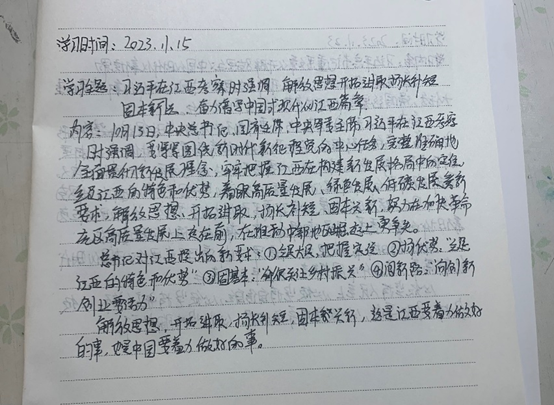 学习时间：2023.11.15
学习主题：习近平在江西考察时强调 解放思想开拓进取扬长补短
固本兴新 奋力谱写中国式现代化江西篇章
内容：10月13日，中央总书记，国家主席，中央军委主席习近平在江西考察
时强调，要紧紧围绕新时代新征程党的中心任务，完整准确地
全面贯彻新发展理念，牢牢把握江西在构建新发展格局中的定位
立足江西的特色和优势，着眼高质量发展、绿色发展、低碳发展等新
要求，解放思想、开拓进取，扬长补短，固本兴新，努力在加快革命
老区高质量发展上走在前，在推动中部地区崛起上勇争先。
总书记对江西提出的新要求：①全民大局，把握定位 ②扬优势："立足
江西的特色和优势" ③固基本："解 关注乡村振兴" ④闯新路："向创新
创业要动力"
解放思想、开拓进取，扬长补短，固本兴新，这是江西要着力做好
的事，也是中国要着力做好的事。